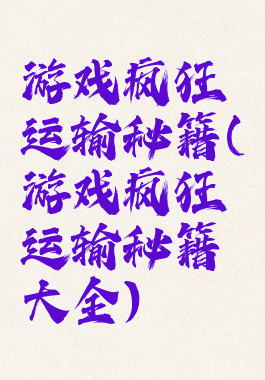 游戏疯狂
运输秘籍(
游戏疯狂
运输秘籍
大全)